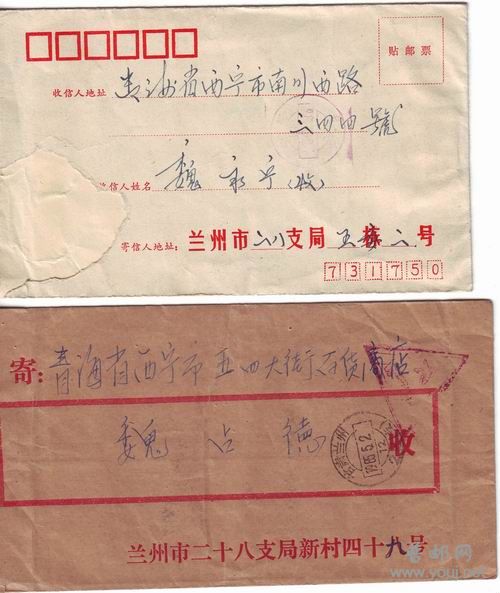 贴邮票
收信人地址 青海省西宁市南川西路
三四四號
收信人姓名 魏永宁(收)
寄信人地址: 兰州市二八支局 二号
731750
寄:青海省西宁市五四大街百货商店
魏占德 收
甘肃兰州
1985.5.2
12
兰州市二十八支局新村四十九号
邮网
www.youj.net